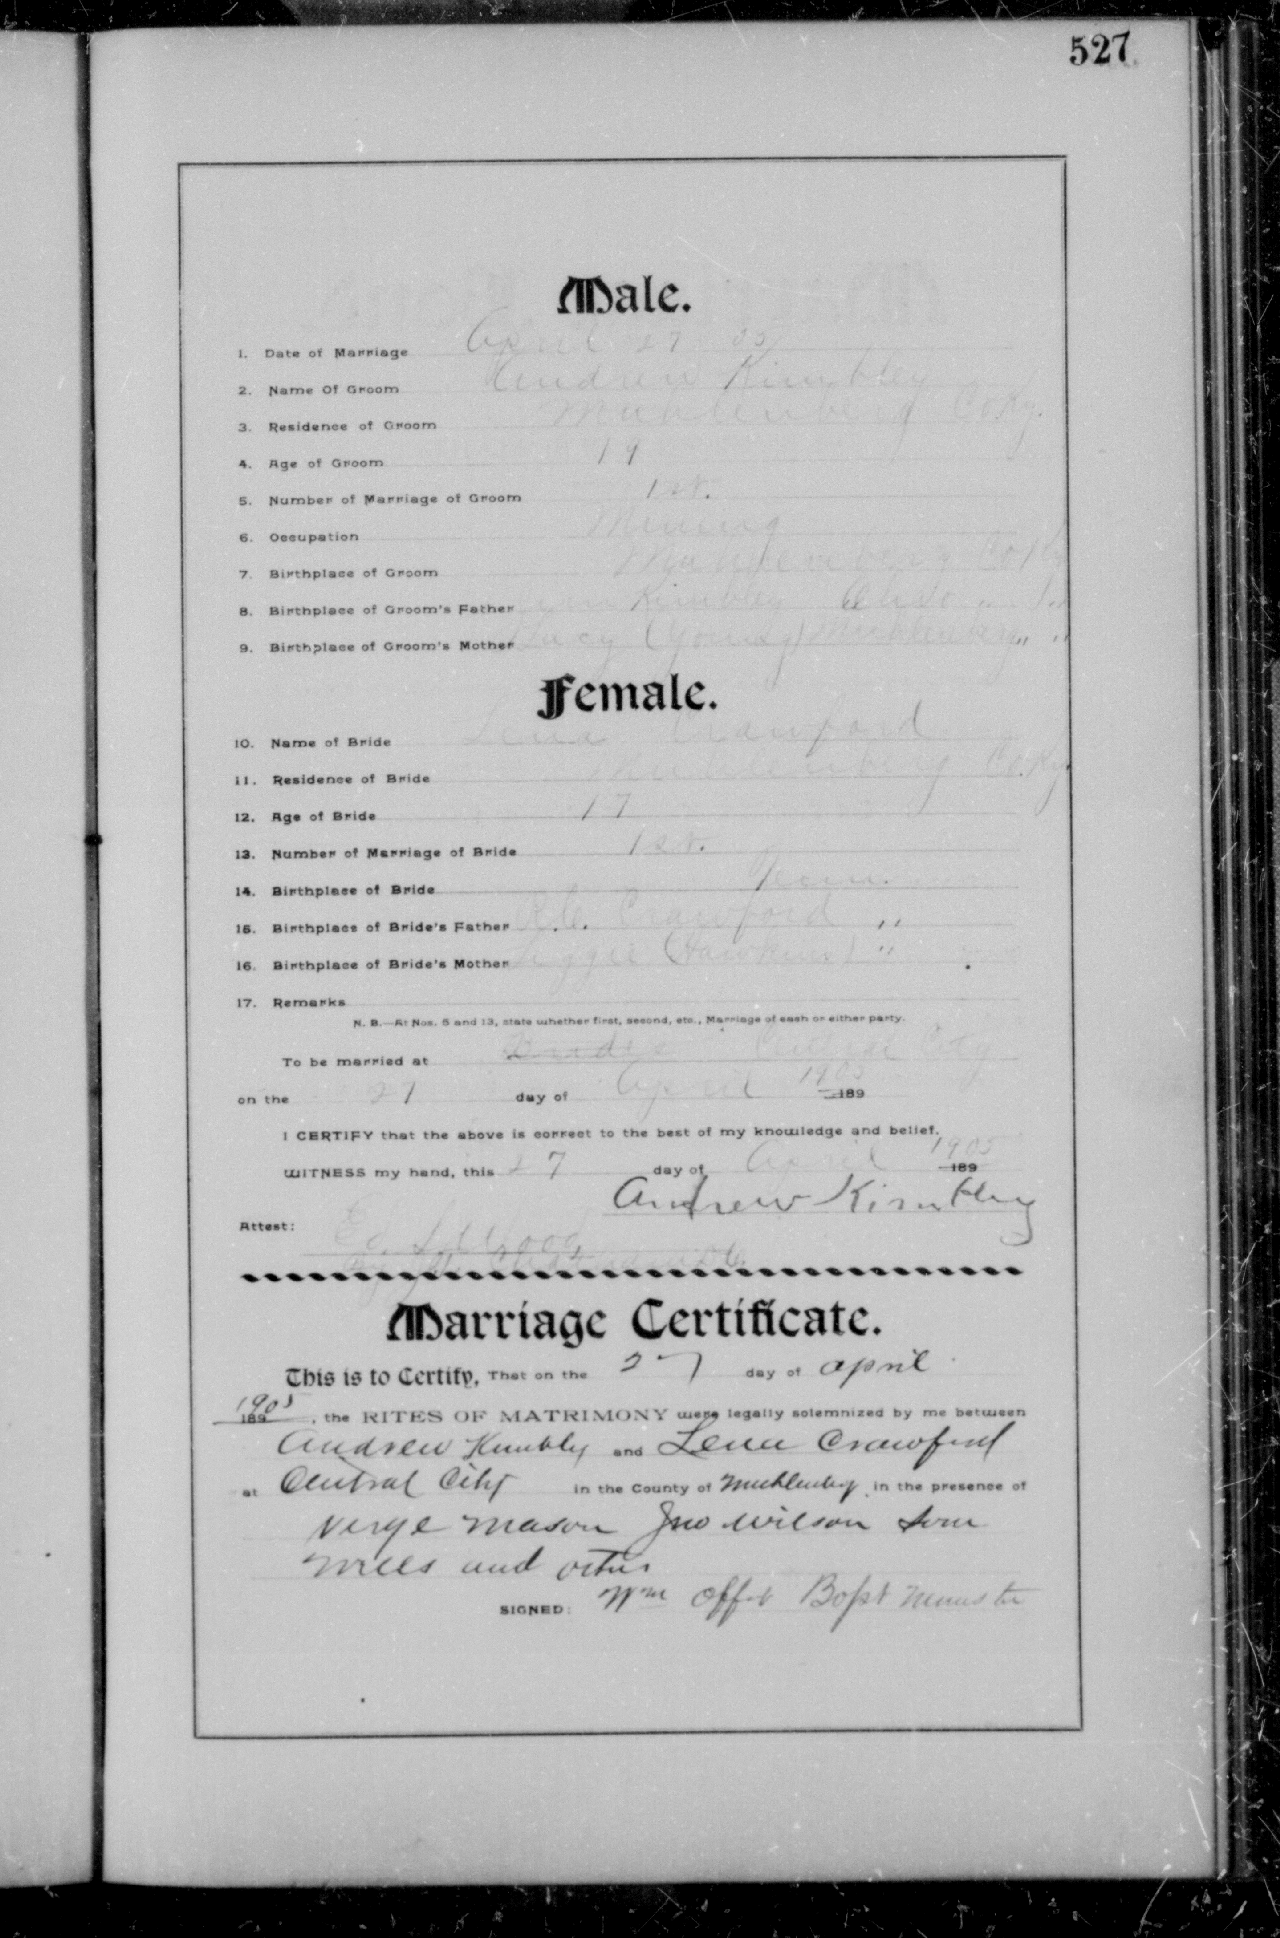 527
Male.
1. Date of Marriage April 27 05
2. Name Of Groom Andrew Kimbley
3. Residence of Groom Muhlenberg Co Ky.
4. Age of Groom 19
5. Number of Marriage of Groom 1st.
6. Occupation Mining
7. Birthplace of Groom Muhlenberg Co Ky
8. Birthplace of Groom's Father Kimbley Ohio " "
9. Birthplace of Groom's Mother Lucy (Young) Muhlenberg " "
Female.
10. Name of Bride Lena Crawford
11. Residence of Bride Muhlenberg Co. Ky
12. Age of Bride 17
13. Number of Marriage of Bride 1st.
14. Birthplace of Bride Tenn.
15. Birthplace of Bride's Father Crawford "
16. Birthplace of Bride's Mother (Hawkins) "
17. Remarks
N. B.—At Nos. 5 and 13, state whether first, second, etc., Marriage of each or either party.
To be married at Central City
on the 27 day of April 1905 189
I CERTIFY that the above is correct to the best of my knowledge and belief.
WITNESS my hand, this 27 day of April 1905 189
Andrew Kimbley
Attest: Ed. S. Wood
Marriage Certificate.
This is to Certify, That on the 27 day of april
1905 189 , the RITES OF MATRIMONY were legally solemnized by me between
Andrew Kimbly and Lena Crawford
at Central City in the County of Muhlenberg in the presence of
Verge Mason Jno Wilson
and others
SIGNED: Wm Offet Bapt Minister